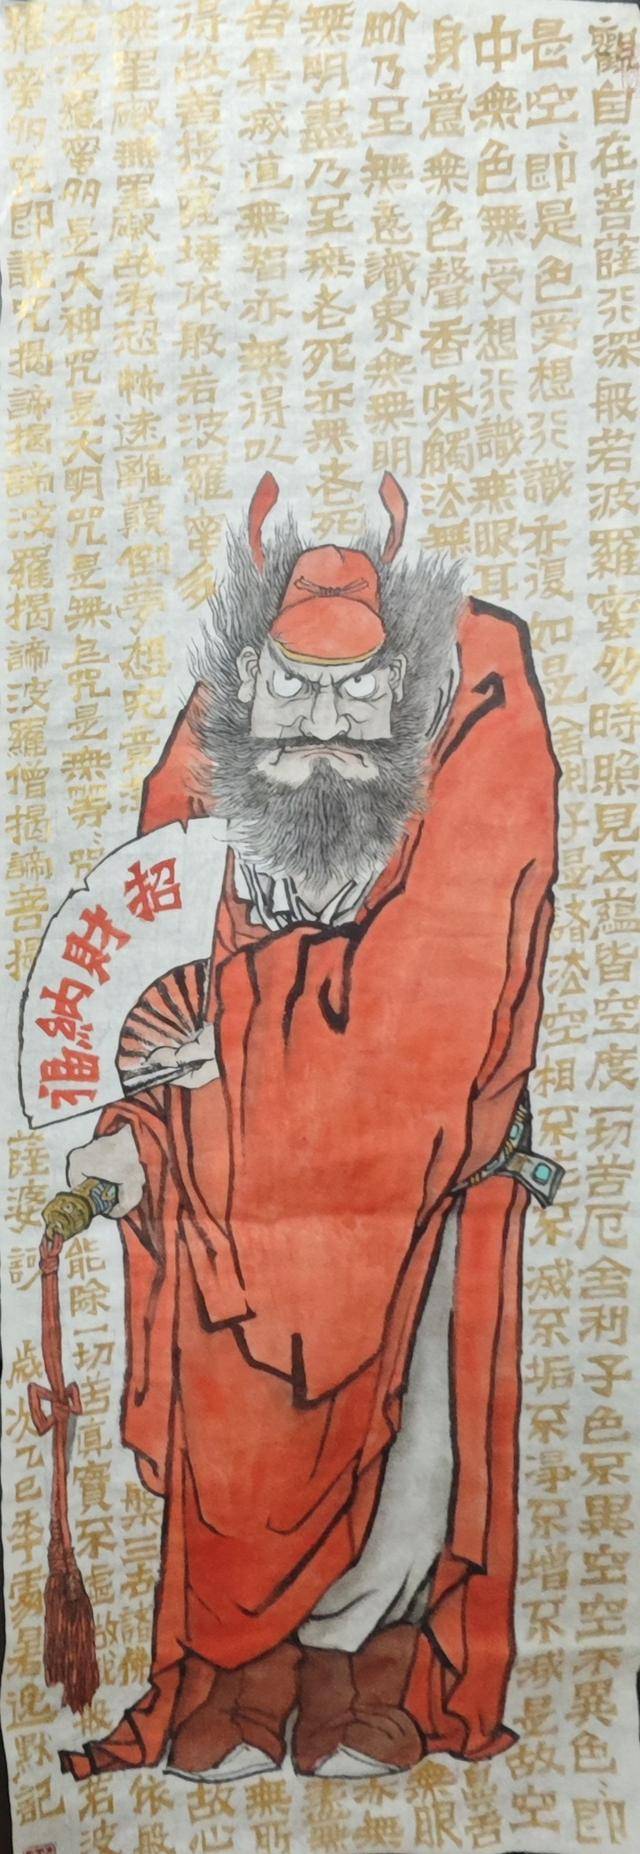 觀自在菩薩行深般若波羅蜜多時照見五蘊皆空度一切苦厄舍利子色不異空空不異色〻即
是空〻即是色受想行識亦復如是舍利子是諸法空相不生不滅不垢不淨不增不減是故空
中無色無受想行識無眼耳鼻舌
身意無色聲香味觸法無眼
界乃至無意識界無無明亦無
無明盡乃至無老死亦無老死盡無
苦集滅道無智亦無得以無所
得故菩提薩埵依般若波羅蜜多故心
無罣礙無罣礙故有恐怖遠離顛倒夢想究竟槃三世諸佛依般
若波羅蜜多是大神咒是大明咒是無上咒是無等〻咒能除一切苦真實不虛故說般若波
羅蜜多咒即說咒揭諦揭諦波羅揭諦波羅僧揭諦菩提薩婆訶
歲次乙巳年夏君逸默記
招財納福